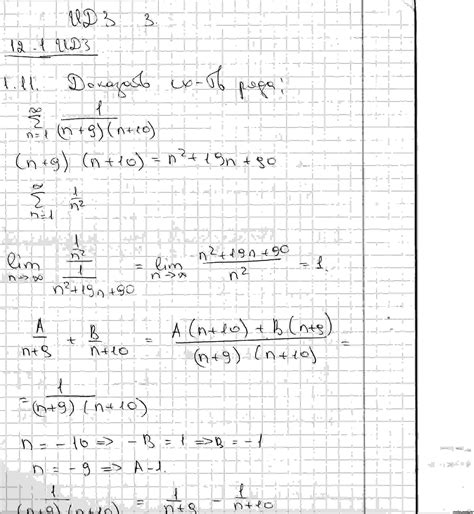 ИДЗ 3.
12.1 ИДЗ
1.11. Доказать сх-ть ряда:
∞ ∑ n=1 1/((n+9)(n+10))
(n+9)(n+10) = n²+19n+90
∞ ∑ n=1 1/n²
lim n→∞ (1/n²)/(1/(n²+19n+90)) = lim n→∞ (n²+19n+90)/n² = 1.
A/(n+9) + B/(n+10) = (A(n+10)+B(n+9))/((n+9)(n+10)) =
= 1/((n+9)(n+10))
n = -10 => -B = 1 => B = -1
n = -9 => A-1.
1/((n+9)(n+10)) = 1/(n+9) - 1/(n+10)